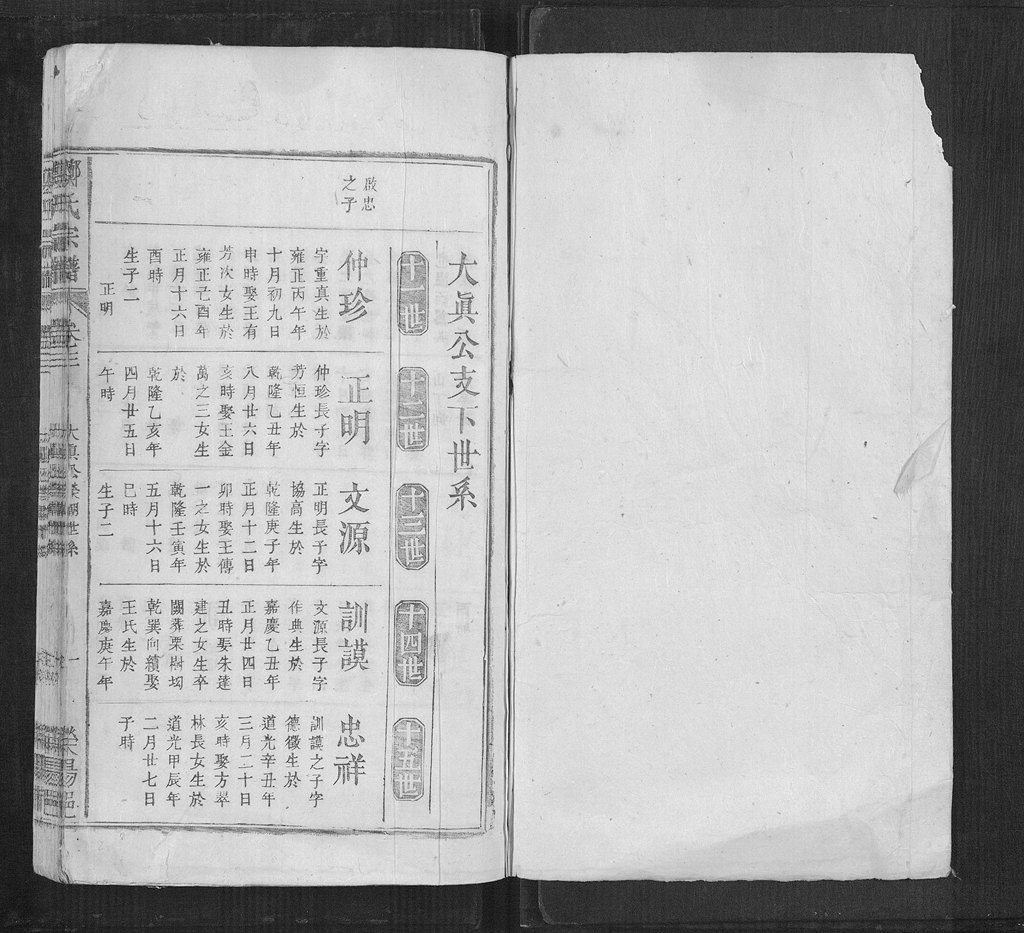 大眞公支下世系
十一世
十二世
十三世
十四世
十五世
啟忠
之子
仲珍
字重真生於
雍正丙午年
十月初九日
申時娶王有
芳次女生於
雍正己酉年
正月十六日
酉時
生子二
正明
正明
仲珍長子字
芳恒生於
乾隆乙丑年
八月廿六日
亥時娶王金
萬之三女生
於
乾隆乙亥年
四月廿五日
午時
文源
正明長子字
協高生於
乾隆庚子年
正月十二日
卯時娶王傳
一之女生於
乾隆壬寅年
五月十六日
巳時
生子二
訓謨
文源長子字
作典生於
嘉慶乙丑年
正月廿四日
丑時娶朱達
建之女生卒
闕葬栗樹坳
乾巽向續娶
王氏生於
嘉慶庚午年
忠祥
訓謨之子字
德徵生於
道光辛丑年
三月二十日
亥時娶方翠
林長女生於
道光甲辰年
二月廿七日
子時
鄭氏宗譜
卷三
世系
一